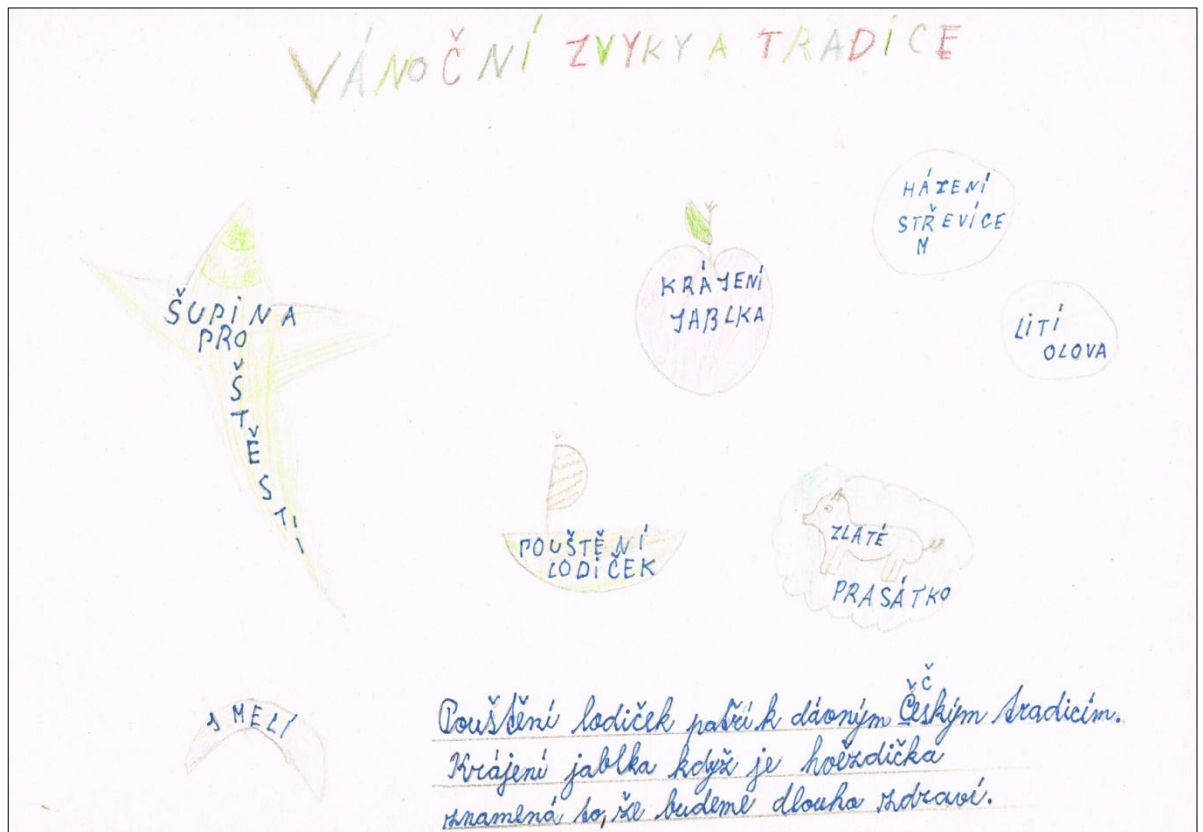 VÁNOČNÍ ZVYKY A TRADICE
HÁZENÍ
STŘEVÍCE
M
KRÁJENÍ
JABLKA
LITÍ
OLOVA
ŠUPINA
PRO
ŠTĚSTÍ
POUŠTĚNÍ
LODIČEK
ZLATÉ
PRASÁTKO
JMELÍ
č
Pouštění lodiček patří k dávným Českým tradicím.
Krájení jablka když je hvězdička
znamená to, že budeme dlouho zdraví.